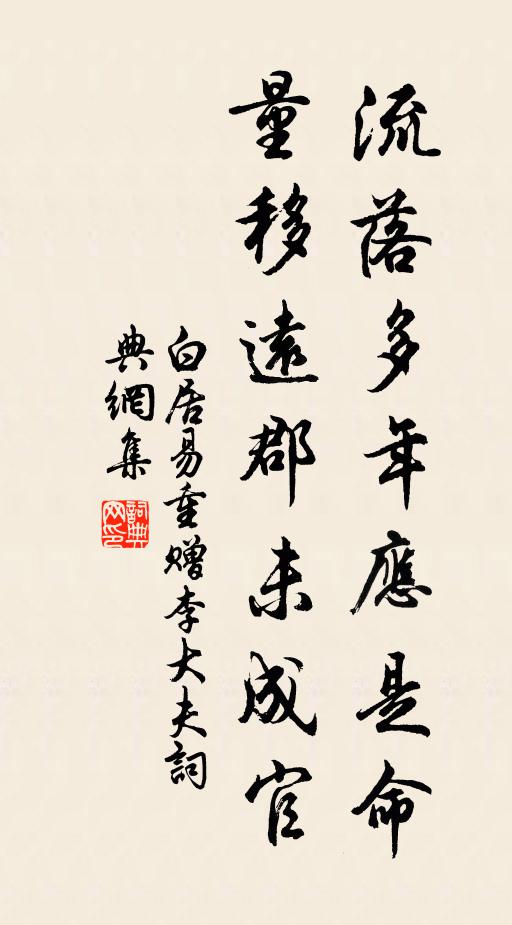 流落多年應是命
量移遠郡未成官
白居易重赠李大夫詞
典網集
詞典网印